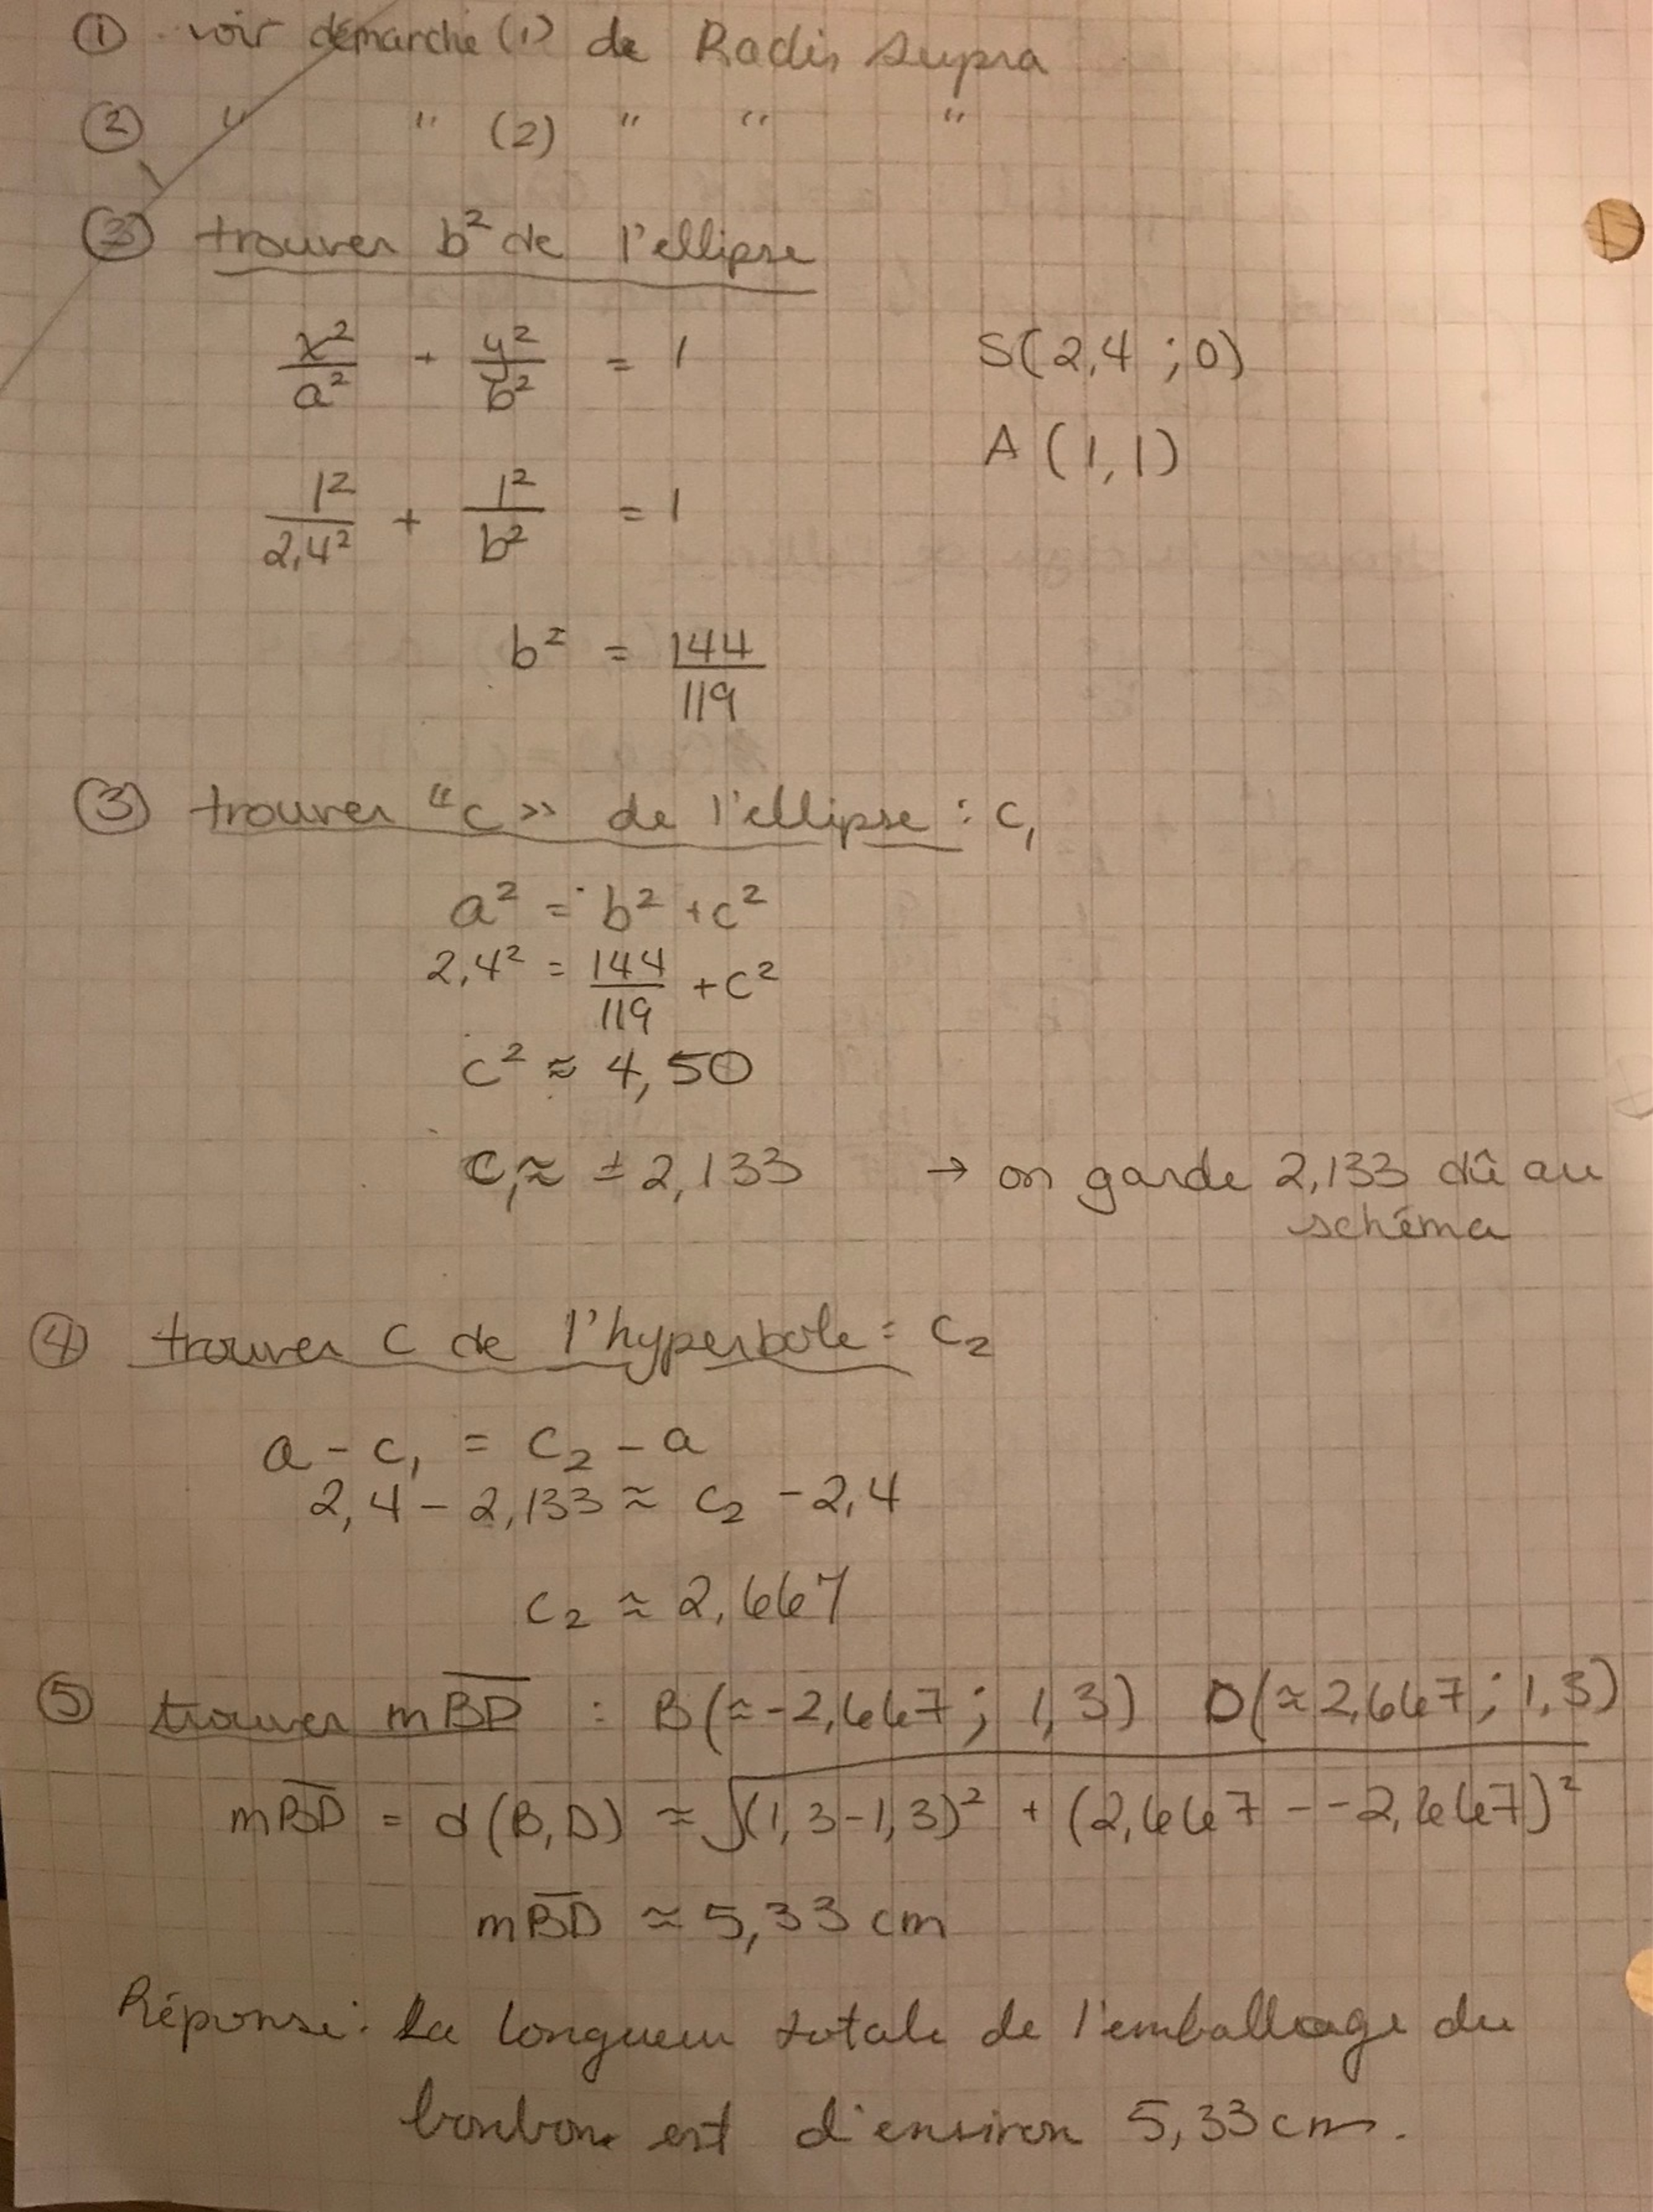 ① voir démarche (1) de Radis supra
② " " (2) " " "
③ trouver b² de l'ellipse
x²/a² + y²/b² = 1 S(2,4 ; 0)
A (1,1)
1²/2,4² + 1²/b² = 1
b² = 144/119
③ trouver "c» de l'ellipse : c₁
a² = b² + c²
2,4² = 144/119 + c²
c² ≈ 4,50
c₁ ≈ ± 2,133 → on garde 2,133 dû au
schéma
④ trouver c de l'hyperbole = c₂
a - c₁ = c₂ - a
2,4 - 2,133 ≈ c₂ - 2,4
c₂ ≈ 2,667
⑤ trouver mBD : B(≈-2,667 ; 1,3) D(≈2,667 ; 1,3)
mBD = d(B,D) ≈ √(1,3-1,3)² + (2,667 - -2,667)²
mBD ≈ 5,33 cm
Réponse : La longueur totale de l'emballage du
bonbon est d'environ 5,33 cm.